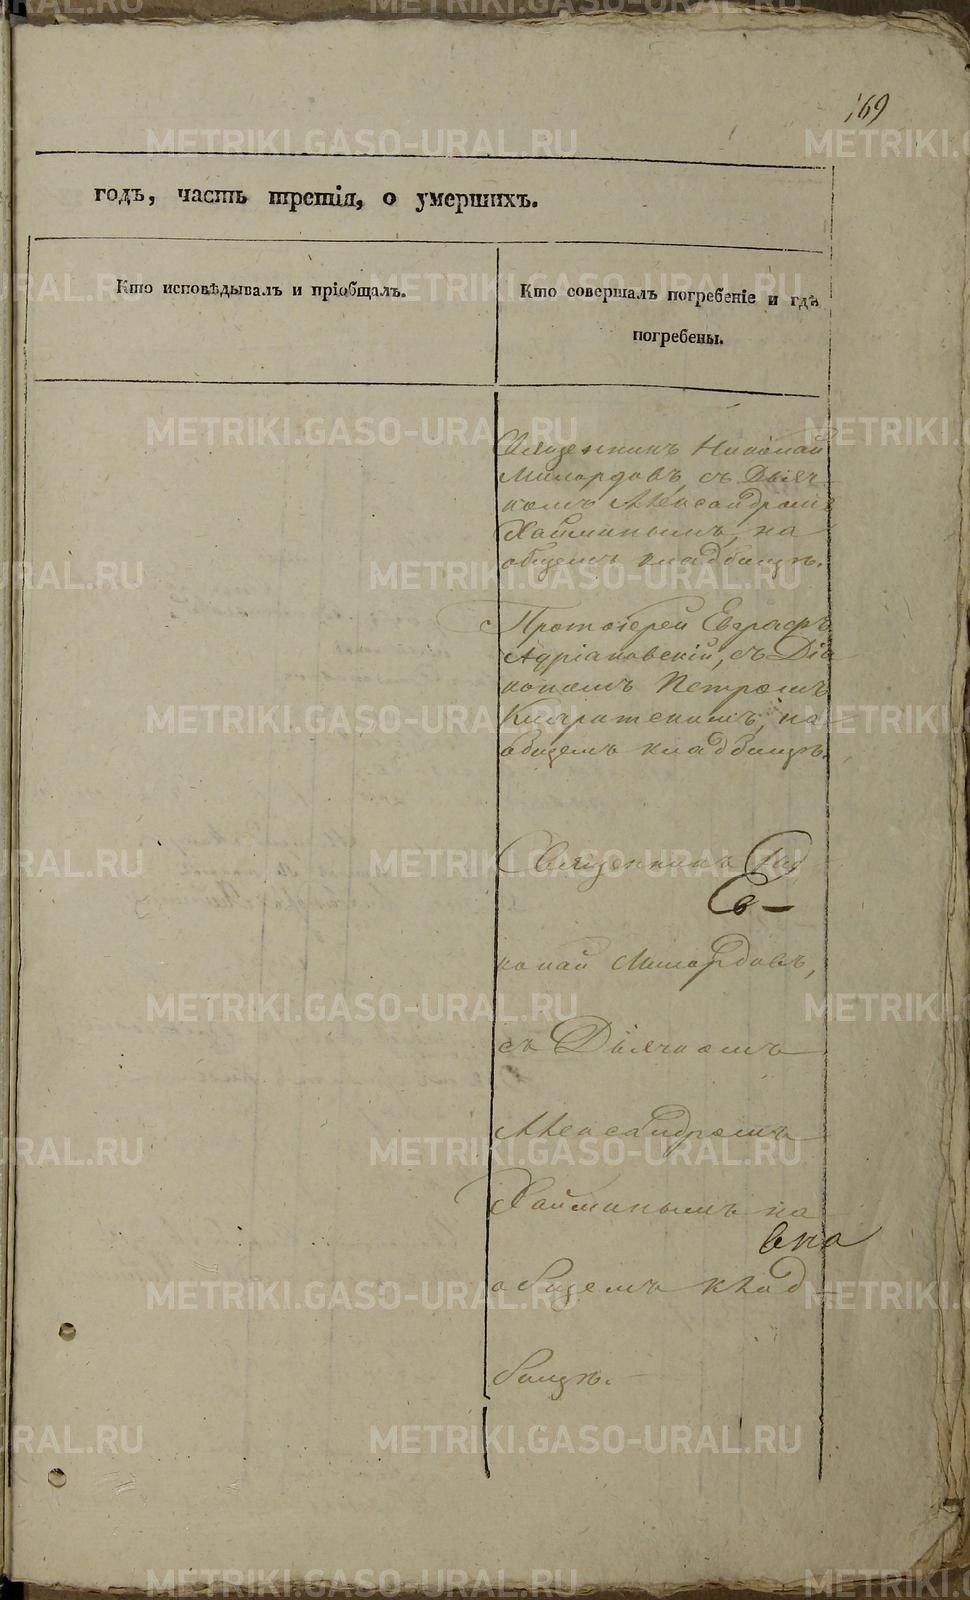 169
годъ, часть третія, о умершихъ.
Кто исповѣдывалъ и пріобщалъ.
Кто совершалъ погребеніе и гдѣ
погребены.
Священникъ Николай
Милордовъ, съ Дьяч-
комъ Александромъ
Хайминымъ, на
общемъ кладбищѣ.
Протоіерей Евграфъ
Адріановскій, съ Діа
кономъ Петромъ
на
общемъ кладбищѣ.
Священникъ
колай Милордовъ,
съ Дьячкомъ
Александромъ
Хайминымъ на
общемъ клад-
бищѣ.
METRIKI.GASO-URAL.RU